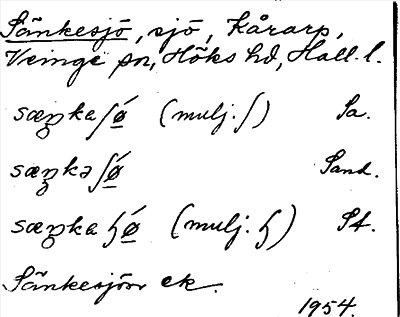 Sänkesjö, sjö, Kårarp,
Veinge sn, Höks hd, Hall. l.
sæŋka ʃǿ (mulj. ʃ) Sa.
sæŋkə ʃǿ Sand.
sæŋka ɧǿ (mulj. ɧ) St.
Sänkesjön ek.
1954.